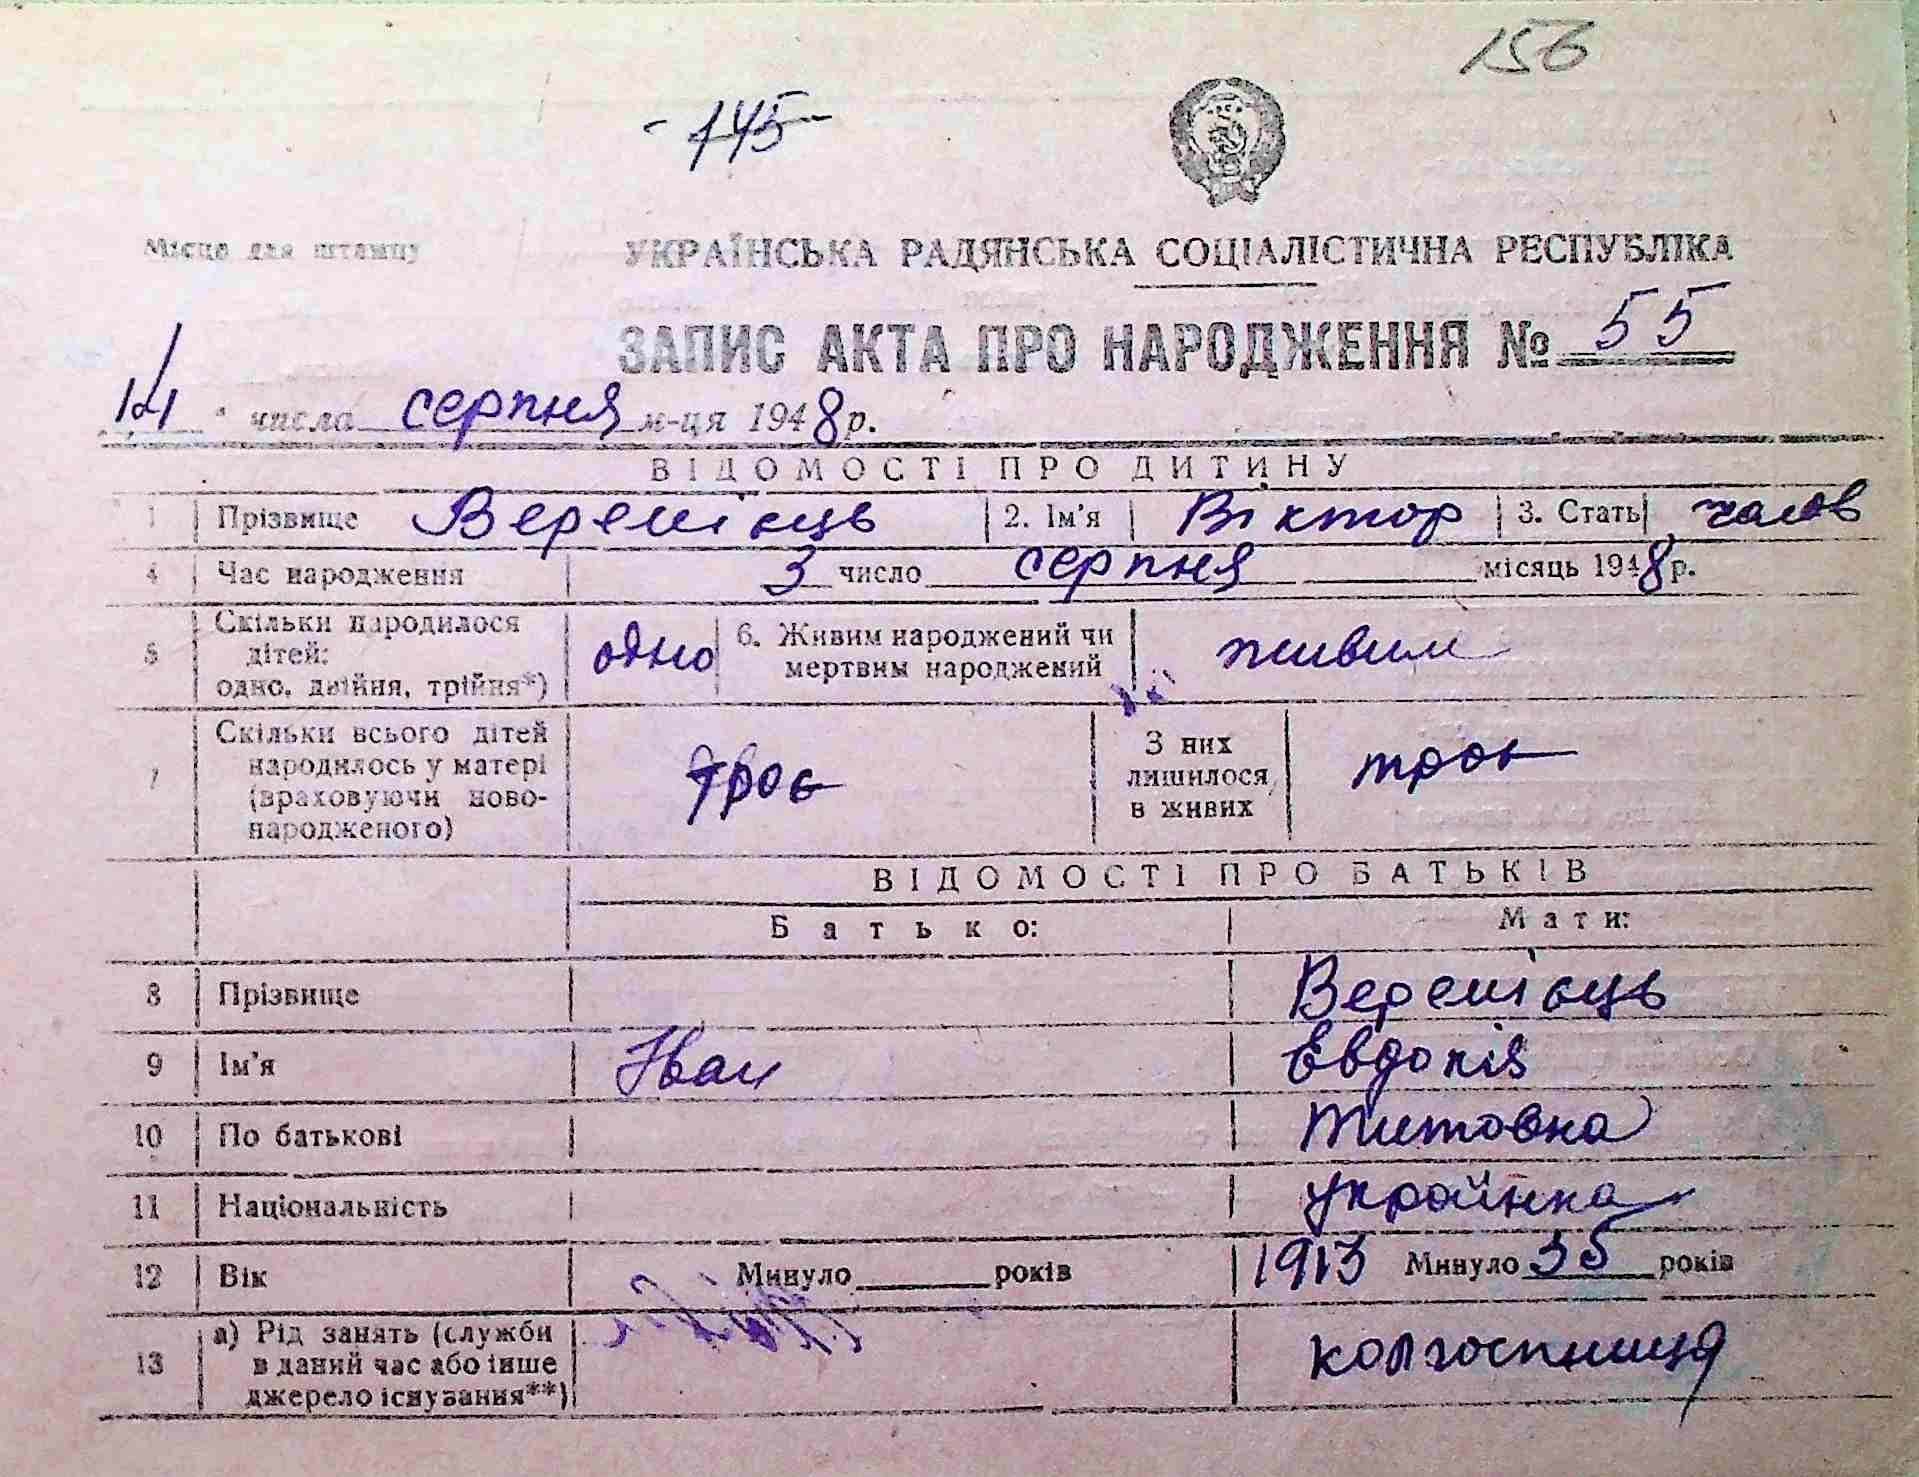 156
- 145 -
Місце для штампу
УКРАЇНСЬКА РАДЯНСЬКА СОЦІАЛІСТИЧНА РЕСПУБЛІКА
ЗАПИС АКТА ПРО НАРОДЖЕННЯ № 55
14 числа серпня м-ця 1948 р.
ВІДОМОСТІ ПРО ДИТИНУ
1 Прізвище Веремієць 2. Ім'я Віктор 3. Стать чолов
4 Час народження 3 число серпня місяць 1948 р.
5 Скільки народилося дітей: одно, двійня, трійня*) одно 6. Живим народжений чи мертвим народжений живим
7 Скільки всього дітей народилось у матері (враховуючи новонародженого) троє З них лишилося в живих троє
ВІДОМОСТІ ПРО БАТЬКІВ
Батько: Мати:
8 Прізвище Веремієць
9 Ім'я Іван Евдокія
10 По батькові Титовна
11 Національність українка
12 Вік Минуло років 1913 Минуло 35 років
13 а) Рід занять (служби в даний час або інше джерело існування**) колгоспниця